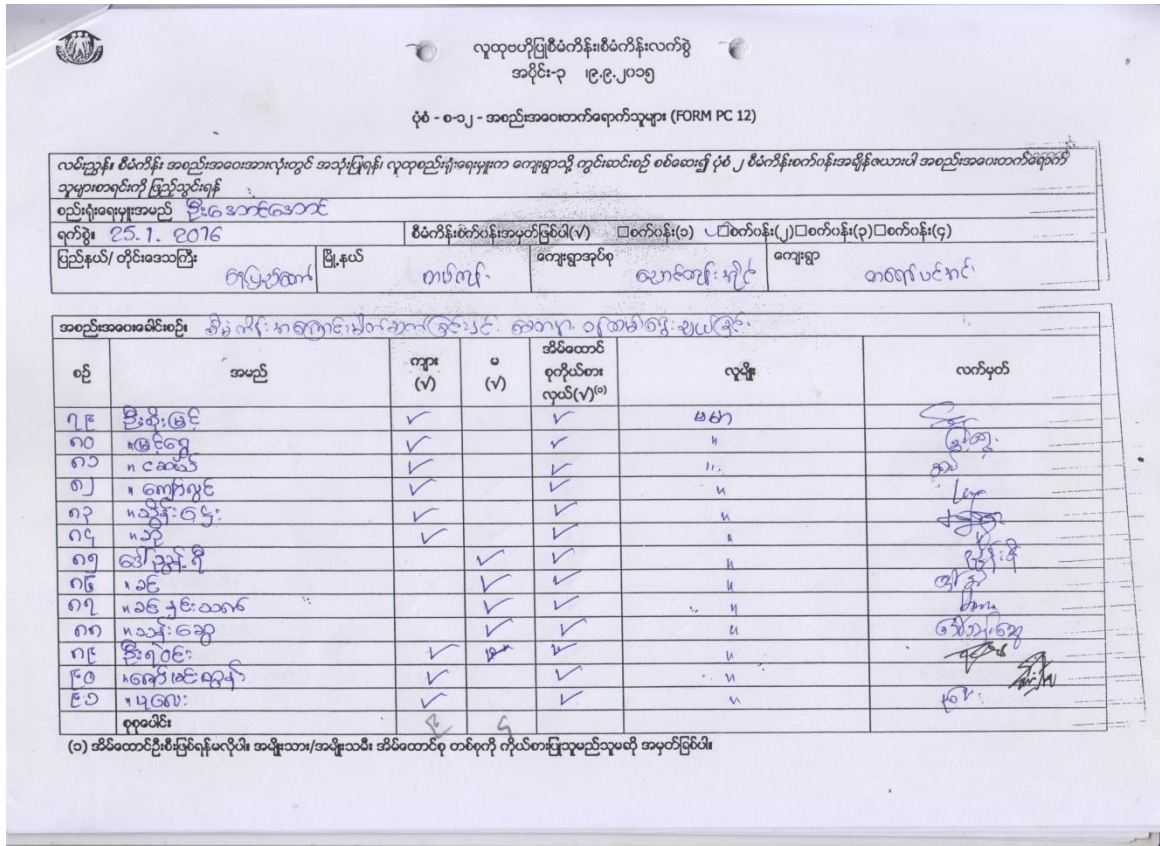 လူထုဗဟိုပြုစီမံကိန်း၊စီမံကိန်းလက်စွဲ
အပိုင်း-၃ ၊၉.၉.၂၀၁၅
ပုံစံ - စ-၁၂ - အစည်းအဝေးတက်ရောက်သူများ (FORM PC 12)
လမ်းညွှန်။ စီမံကိန်း အစည်းအဝေးအားလုံးတွင် အသုံးပြုရန်၊ လူထုစည်းရုံးရေးမှူးက ကျေးရွာသို့ ကွင်းဆင်းစဉ် စစ်ဆေး၍ ပုံစံ ၂ စီမံကိန်းစက်ဝန်းအချိန်ဇယားပါ အစည်းအဝေးတက်ရောက်
သူများစာရင်းကို ဖြည့်သွင်းရန်
စည်းရုံးရေးမှူးအမည် ဦးအောင်အောင်
ရက်စွဲ။ 25.1. 2016 စီမံကိန်းစက်ဝန်းအမှတ်ဖြစ်ပါ(√) □စက်ဝန်း(၁) ✓□စက်ဝန်း(၂)□စက်ဝန်း(၃)□စက်ဝန်း(၄)
ပြည်နယ်/ တိုင်းဒေသကြီး နေပြည်တော် မြို့နယ် တပ်ကုန်း ကျေးရွာအုပ်စု ကျေးရွာ
အစည်းအဝေးခေါင်းစဉ်။
စဉ် အမည် ကျား (√) မ (√) အိမ်ထောင်စုကိုယ်စားလှယ်(√)⁽⁰⁾ လူမျိုး လက်မှတ်
၇၉ ဦးစိုးမြင့် ✓ ✓ ဗမာ
၈၀ " မြင့်ရွှေ ✓ ✓ "
၈၁ " ငဆယ် ✓ ✓ "
၈၂ " ကျော်လွင် ✓ ✓ "
၈၃ " သိန်းဌေး ✓ ✓ "
၈၄ " ဘို ✓ ✓ "
၈၅ ဒေါ်ညွန့်ရီ ✓ ✓ "
၈၆ " ခင် ✓ ✓ "
၈၇ " ခင်နှင်းသက် ✓ ✓ "
၈၈ " သန်းဆွေ ✓ ✓ " ဒေါ်သန်းဆွေ
၈၉ ဦးရဲဝင်း ✓ ✓ "
၉၀ " ဇော်မင်းထွန်း ✓ ✓ "
၉၁ " ပုလေး ✓ ✓ "
စုစုပေါင်း ၉ ၄
(၁) အိမ်ထောင်ဦးစီးဖြစ်ရန်မလိုပါ။ အမျိုးသား/အမျိုးသမီး အိမ်ထောင်စု တစ်စုကို ကိုယ်စားပြုသူမည်သူမဆို အမှတ်ခြစ်ပါ။